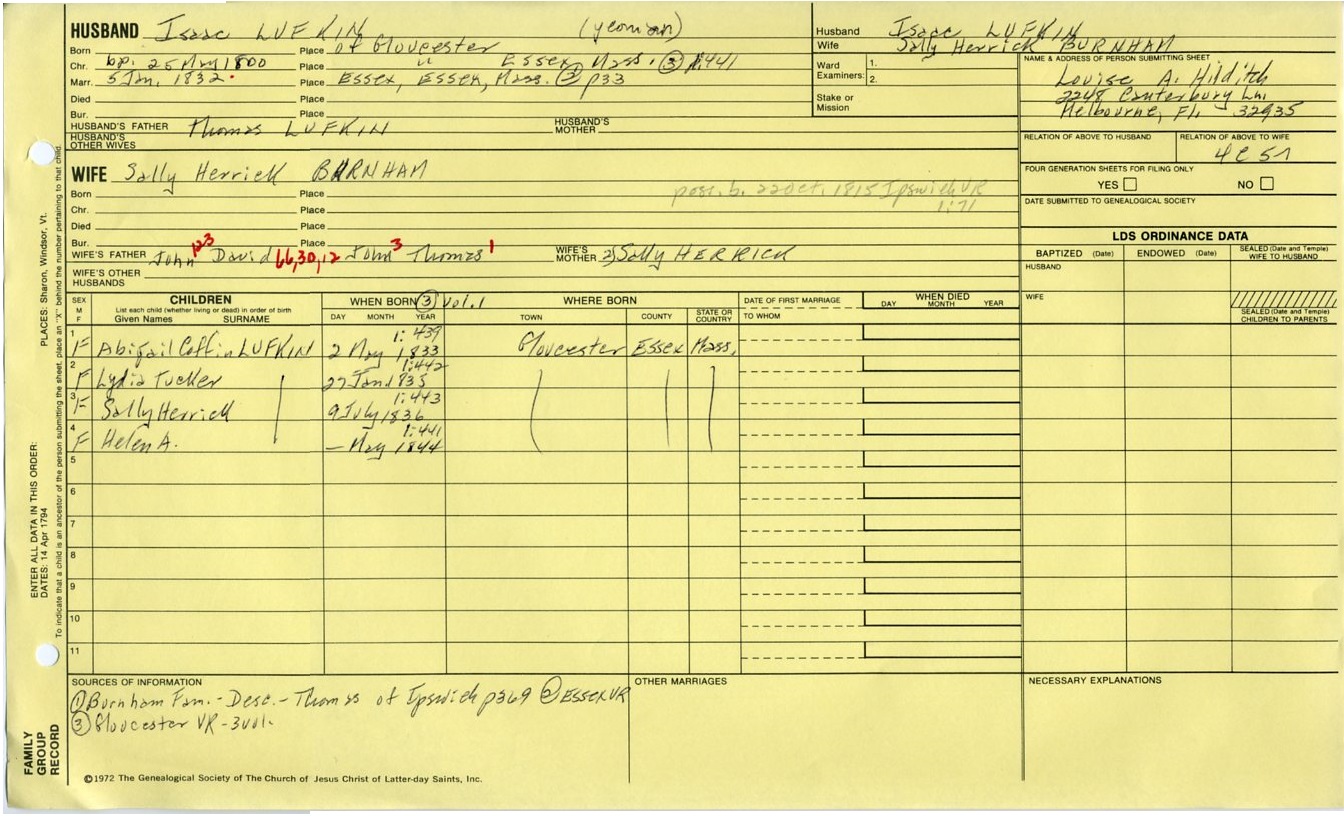 HUSBAND Isaac LUFKIN (yeoman)
Born Place of Gloucester
Chr. bp. 25 May 1800 Place " Essex, Mass. ③ 1:441
Marr. 5 Jan. 1832 Place Essex, Essex, Mass. ② p33
Died Place
Bur. Place
HUSBAND'S FATHER Thomas LUFKIN HUSBAND'S MOTHER
HUSBAND'S OTHER WIVES
WIFE Sally Herrick BURNHAM
Born Place poss. b. 22 Oct. 1815 Ipswich VR
Chr. Place 1:71
Died Place
Bur. Place
WIFE'S FATHER John 123 David 66,30,12 John 3 Thomas 1 WIFE'S MOTHER 2) Sally HERRICK
WIFE'S OTHER HUSBANDS
Husband Isaac LUFKIN
Wife Sally Herrick BURNHAM
Ward Examiners: 1.
2.
Stake or Mission
NAME & ADDRESS OF PERSON SUBMITTING SHEET
Louise A. Hilditch
2248 Canterbury Ln.
Melbourne, Fl. 32935
RELATION OF ABOVE TO HUSBAND RELATION OF ABOVE TO WIFE
4C5R
FOUR GENERATION SHEETS FOR FILING ONLY
YES NO
DATE SUBMITTED TO GENEALOGICAL SOCIETY
LDS ORDINANCE DATA
BAPTIZED (Date) ENDOWED (Date) SEALED (Date and Temple) WIFE TO HUSBAND
HUSBAND
WIFE
SEALED (Date and Temple) CHILDREN TO PARENTS
SEX M F CHILDREN WHEN BORN ③ Vol. 1 WHERE BORN DATE OF FIRST MARRIAGE WHEN DIED
List each child (whether living or dead) in order of birth
Given Names SURNAME DAY MONTH YEAR TOWN COUNTY STATE OR COUNTRY TO WHOM DAY MONTH YEAR
1 1:439
F Abigail Coffin LUFKIN 2 May 1833 Gloucester Essex Mass.
2 1:442
F Lydia Tucker 27 Jan. 1835
3 1:443
F Sally Herrick 9 July 1836
4 1:441
F Helen A. — May 1844
5
6
7
8
9
10
11
SOURCES OF INFORMATION
① Burnham Fam. - Desc. - Thomas of Ipswich p369 ② Essex VR
③ Gloucester VR - 3 vol.
OTHER MARRIAGES
NECESSARY EXPLANATIONS
©1972 The Genealogical Society of The Church of Jesus Christ of Latter-day Saints, Inc.
FAMILY GROUP RECORD
ENTER ALL DATA IN THIS ORDER:
DATES: 14 Apr 1794
PLACES: Sharon, Windsor, Vt.
To indicate that a child is an ancestor of the person submitting the sheet, place an "X" behind the number pertaining to that child.